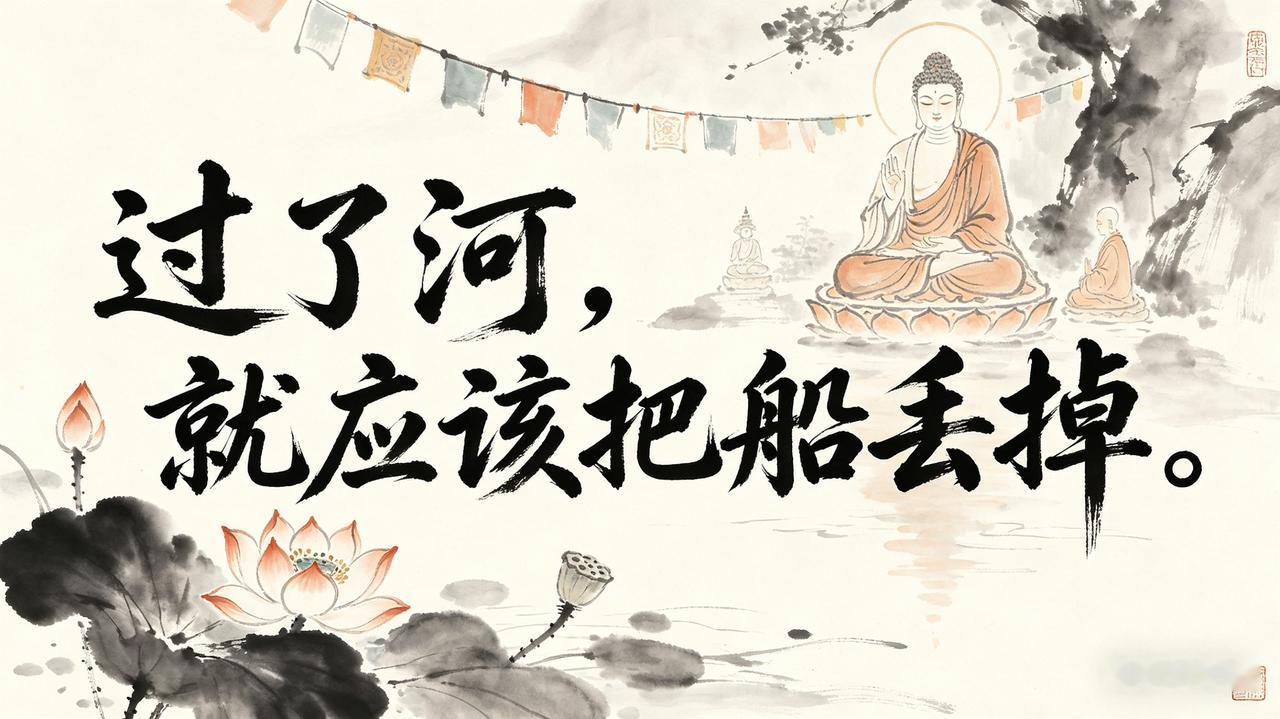 过了河，
就应该把船丢掉。